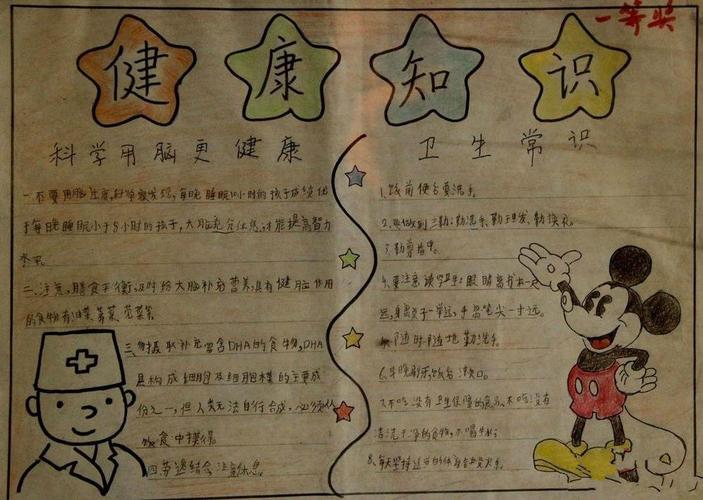 一等奖
健康知识
科学用脑更健康
一、不要用脑过度,科学家发现,每晚睡眠10小时的孩子成绩优
于每晚睡眠小于8小时的孩子,大脑充分休息,才能提高智力
水平。
二、注意膳食平衡,及时给大脑补充营养,具有健脑作用
的食物有油菜、荠菜、菠菜等
三、 摄取补充富含DHA的食物,DHA
是构成细胞及细胞膜的主要成
份之一,但人类无法自行合成,必须从
饮食中摄得
四、劳逸结合注意休息。
卫生常识
1.饭前便后要洗手。
2.要做到三勤:勤洗手、勤理发、勤换衣。
3.勤剪指甲。
4.要注意读写卫生:眼睛离书本一尺
远,身离桌子一拳远,手离笔尖一寸远。
随时随地勤洗手。
6.早晚刷牙,饭后漱口。
7.不吃没有卫生保障的食品,不吃没有
清洗干净的食物,不喝生水。
8.每天坚持适当的体育